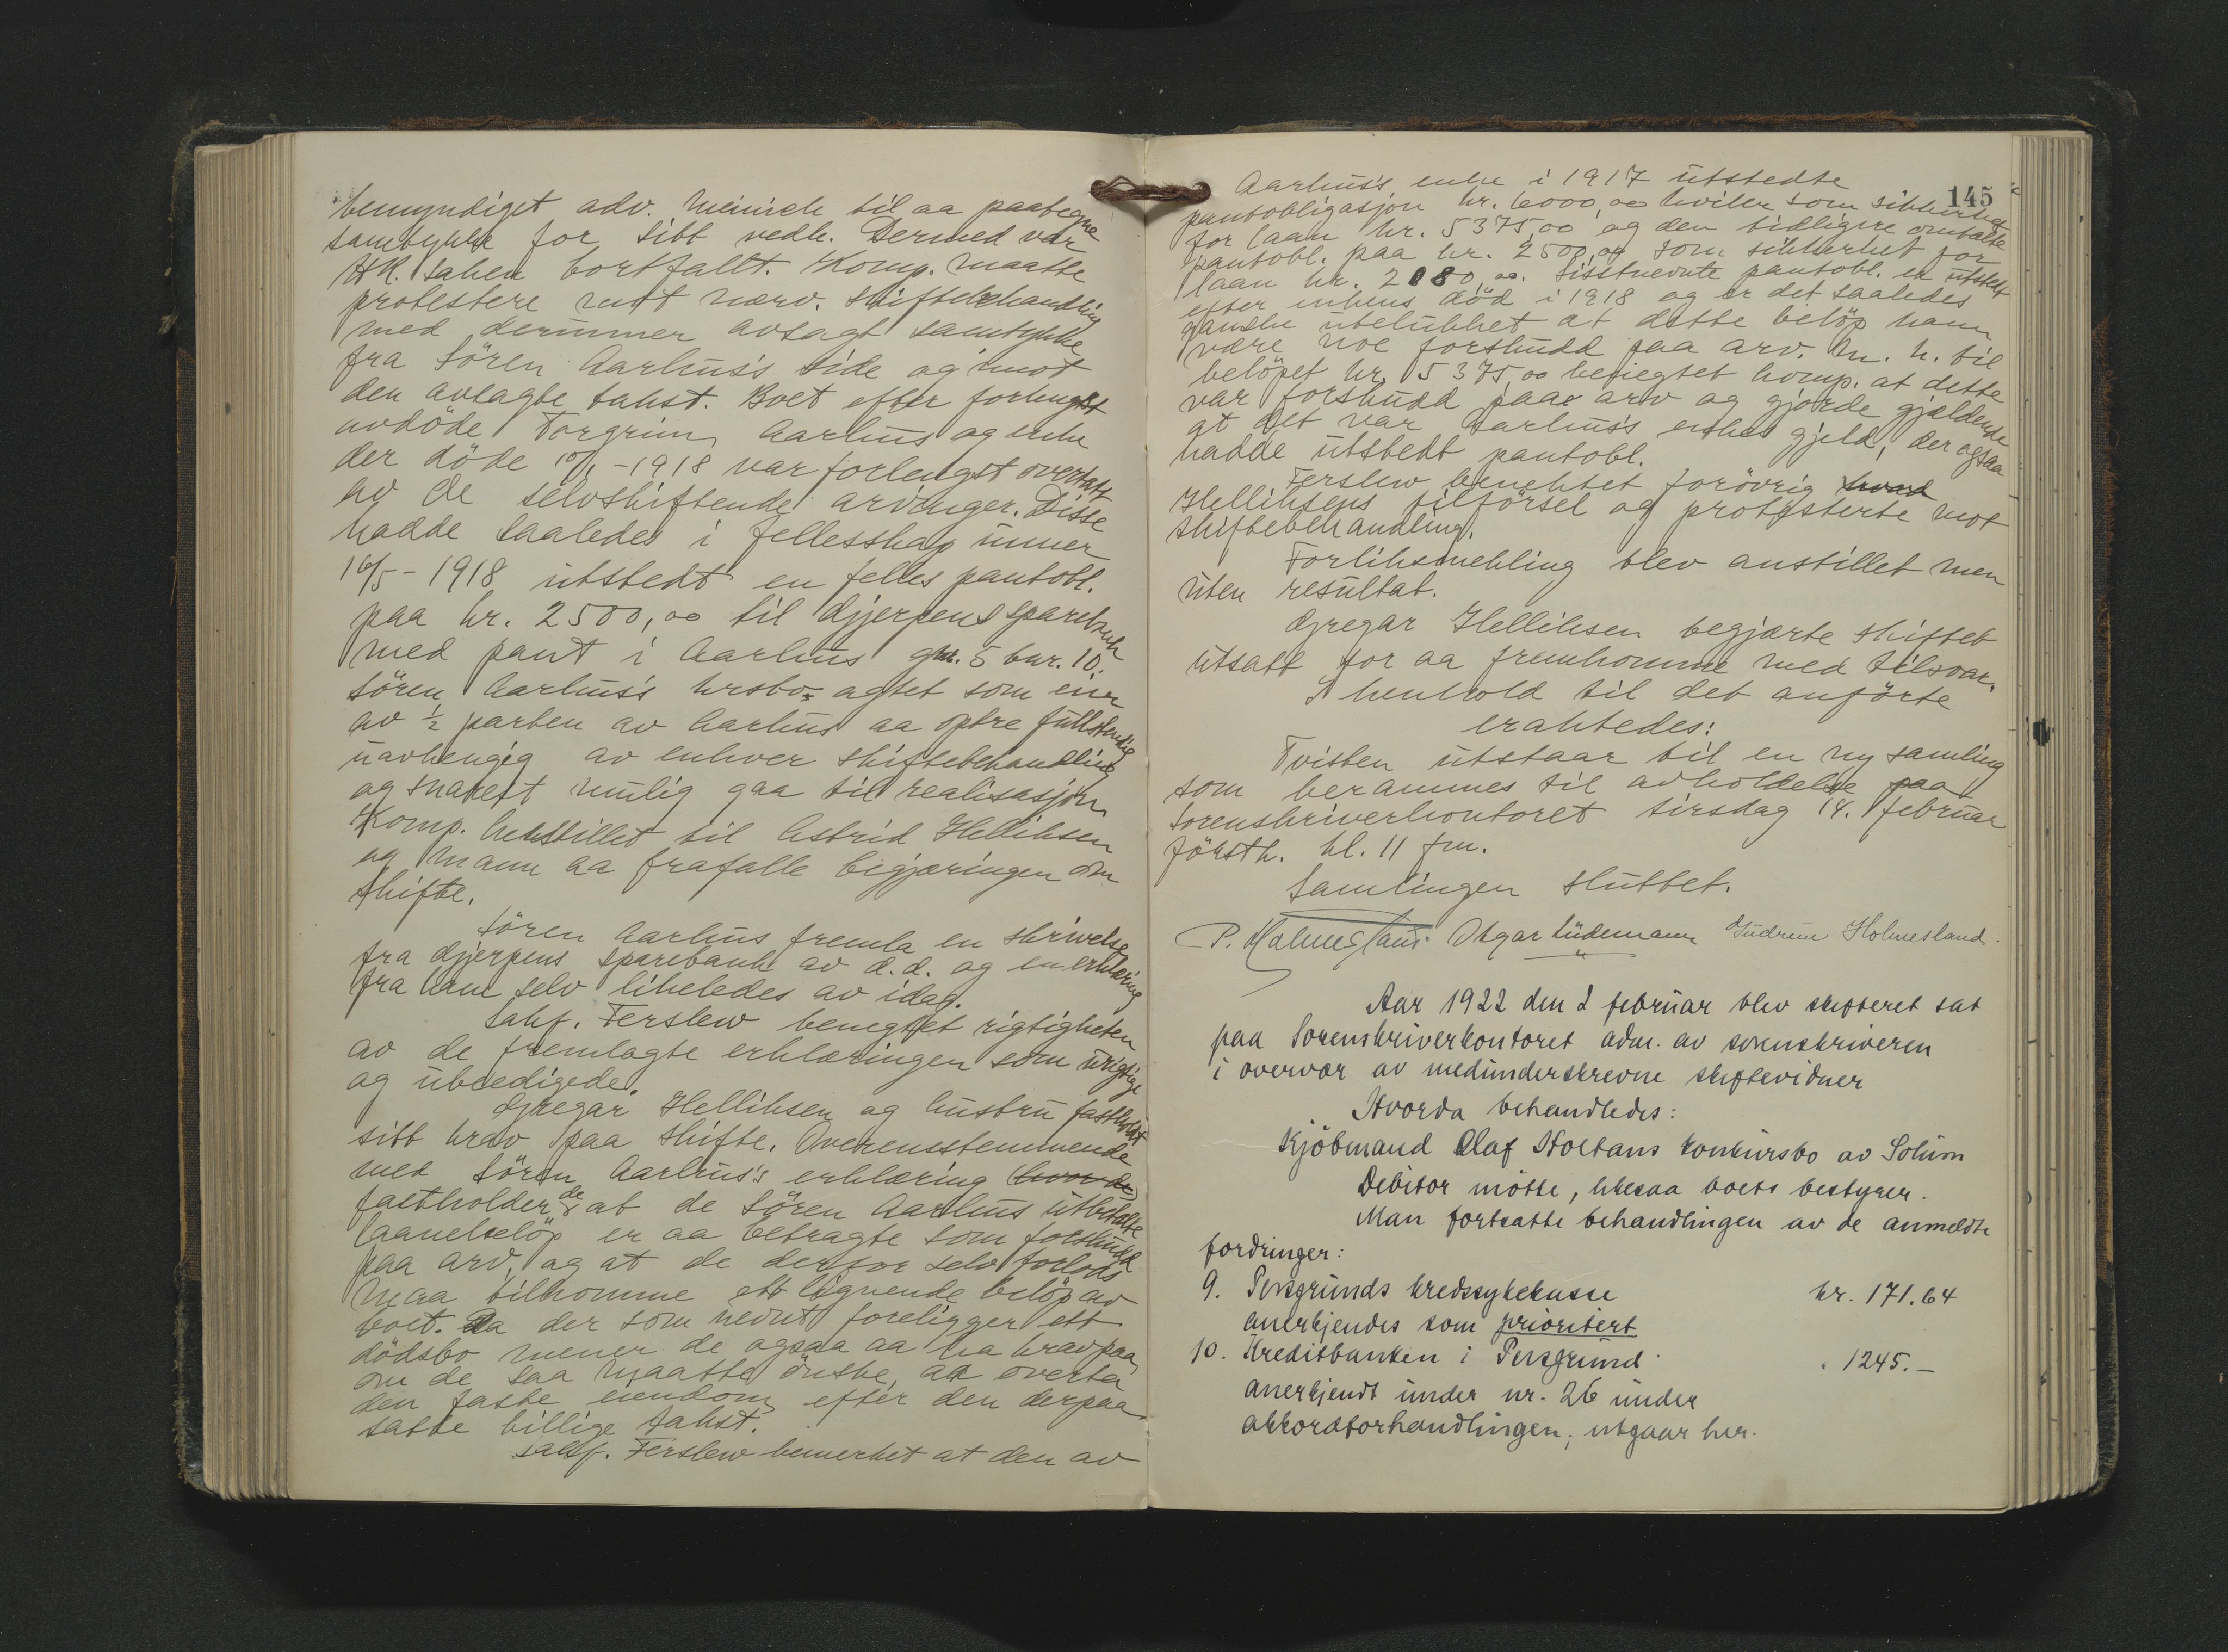 bemyndiget adv. Meinich til aa paategne
samtykke for sitt vedk. Dermed var
HR. saken bortfallt. Komp. maatte
protestere mot nærv. skiftebehandling
med derunner avsagt samtykke
fra Sören Aarhus's side og imot
den avlagte takst. Boet efter forlengst
avdöde Torgrim Aarhus og enke
der döde 10/1 - 1918 var forlengst overtatt
av de selvskiftende arvinger. Disse
hadde saaledes i fellesskap unner
16/5 - 1918 utstedt en felles pantobl.
paa kr. 2500,00 til Gjerpens sparebank
med pant i Aarhus gnr. 5 bnr. 10.
Sören Aarhus's krsbo agtet som eier
av ½ parten av Aarhus aa optre fullstendig
uavhengig av enhver skiftebehandling
og snarest mulig gaa til realisasjon
Komp. henstillet til Astrid Helliksen
og mann aa frafalle begjæringen om
skifte.
Sören Aarhus fremla en skrivelse
fra Gjerpens sparebank av d.d. og en erklæring
fra ham selv likeledes av idag.
Sakf. Ferslew benegtet rigtigheten
av de fremlagte erklæringen som urigtige
og ubeedigede.
Gregar Helliksen og hustru fastholdt
sitt krav paa skifte. Overensstemmende
med Sören Aarhus's erklæring hvor de
fastholder de at de Sören Aarhus utbetalte
laanebelöp er aa betragte som forskudd
paa arv, og at de derfor selv forlods
maa tilkomme ett lignende belöp av
boet. Da der som nevnt foreligger ett
dödsbo mener de ogsaa aa ha krav paa
om de saa maatte önske aa overta
den faste eiendom efter den derpaa
satte billige takst.
Sakf. Ferslew bemerket at den av
145
Aarhus's enke i 1917 utstedte
pantobligasjon kr. 6000,00 hviler som sikkerhet
for laan kr. 5375,00 og den tidligere omtalte
pantobl. paa kr. 2500,00 som sikkerhet for
laan kr. 2080,00. Sisstnevnte pantobl. er utstedt
efter enkens död i 1918 og er det saaledes
ganske utelukket at dette belöp kann
være noe forskudd paa arv. M. h. til
belöpet kr. 5375,00 benegtet komp. at dette
var forskudd paa arv og gjorde gjældende
at det var Aarhus's enkes gjeld, der ogsaa
hadde utstedt pantobl.
Ferslew benektet forövrig hvad
Helliksens tilförsel og protesterte mot
skiftebehandling.
Forliksmekling blev anstillet men
uten resultat.
Gregar Helliksen begjærte skiftet
utsatt for aa fremkomme med tilsvar.
I henhold til det anförte
eraktedes:
Tvisten utstaar til en ny samling
som berammes til avholdelse paa
Sorenskriverkontoret tirsdag 14. februar
förstk. kl. 11 fm.
Samlingen sluttet.
P. Holmesland. Asgar Lüdemann Gudrun Holmesland.
Aar 1922 den 2 februar blev skifteret sat
paa Sorenskriverkontoret adm. av sorenskriveren
i overvær av medunderskrevne skiftevidner
Hvorda behandledes:
Kjöbmand Olaf Stoltans konkursbo av Solum
Debitor mötte, likesaa boets bestyrer.
Man fortsatte behandlingen av de anmeldte
fordringer:
9. Porsgrunds kredssykekasse kr. 171.64
anerkjendes som prioritert
10. Kreditbanken i Porsgrund " 1245.-
anerkjendt under nr. 26 under
akkordforhandlingen; utgaar her.